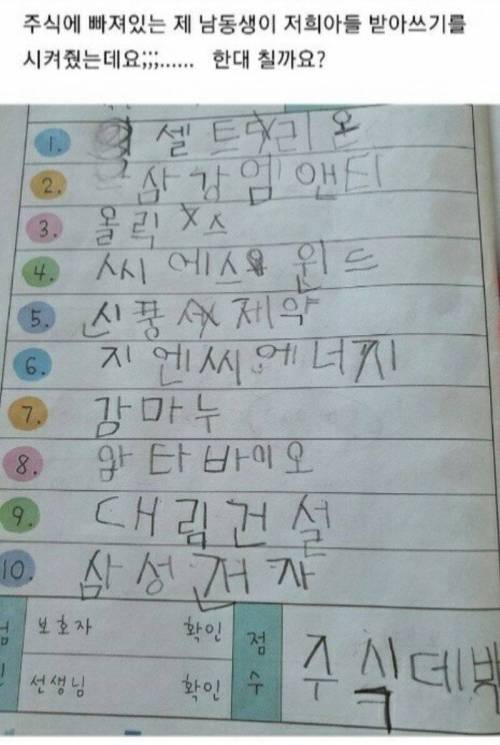 주식에 빠져있는 제 남동생이 저희아들 받아쓰기를
시켜줬는데요;;;...... 한대 칠까요?
1. 셀트리온
2. 삼강엠앤티
3. 올릭스
4. 씨에스 윈드
5. 신풍 제약
6. 지엔씨에너지
7. 감마누
8. 압타바이오
9. 대림건설
10. 삼성전자
보호자 확인
선생님 확인
점수
주식데박